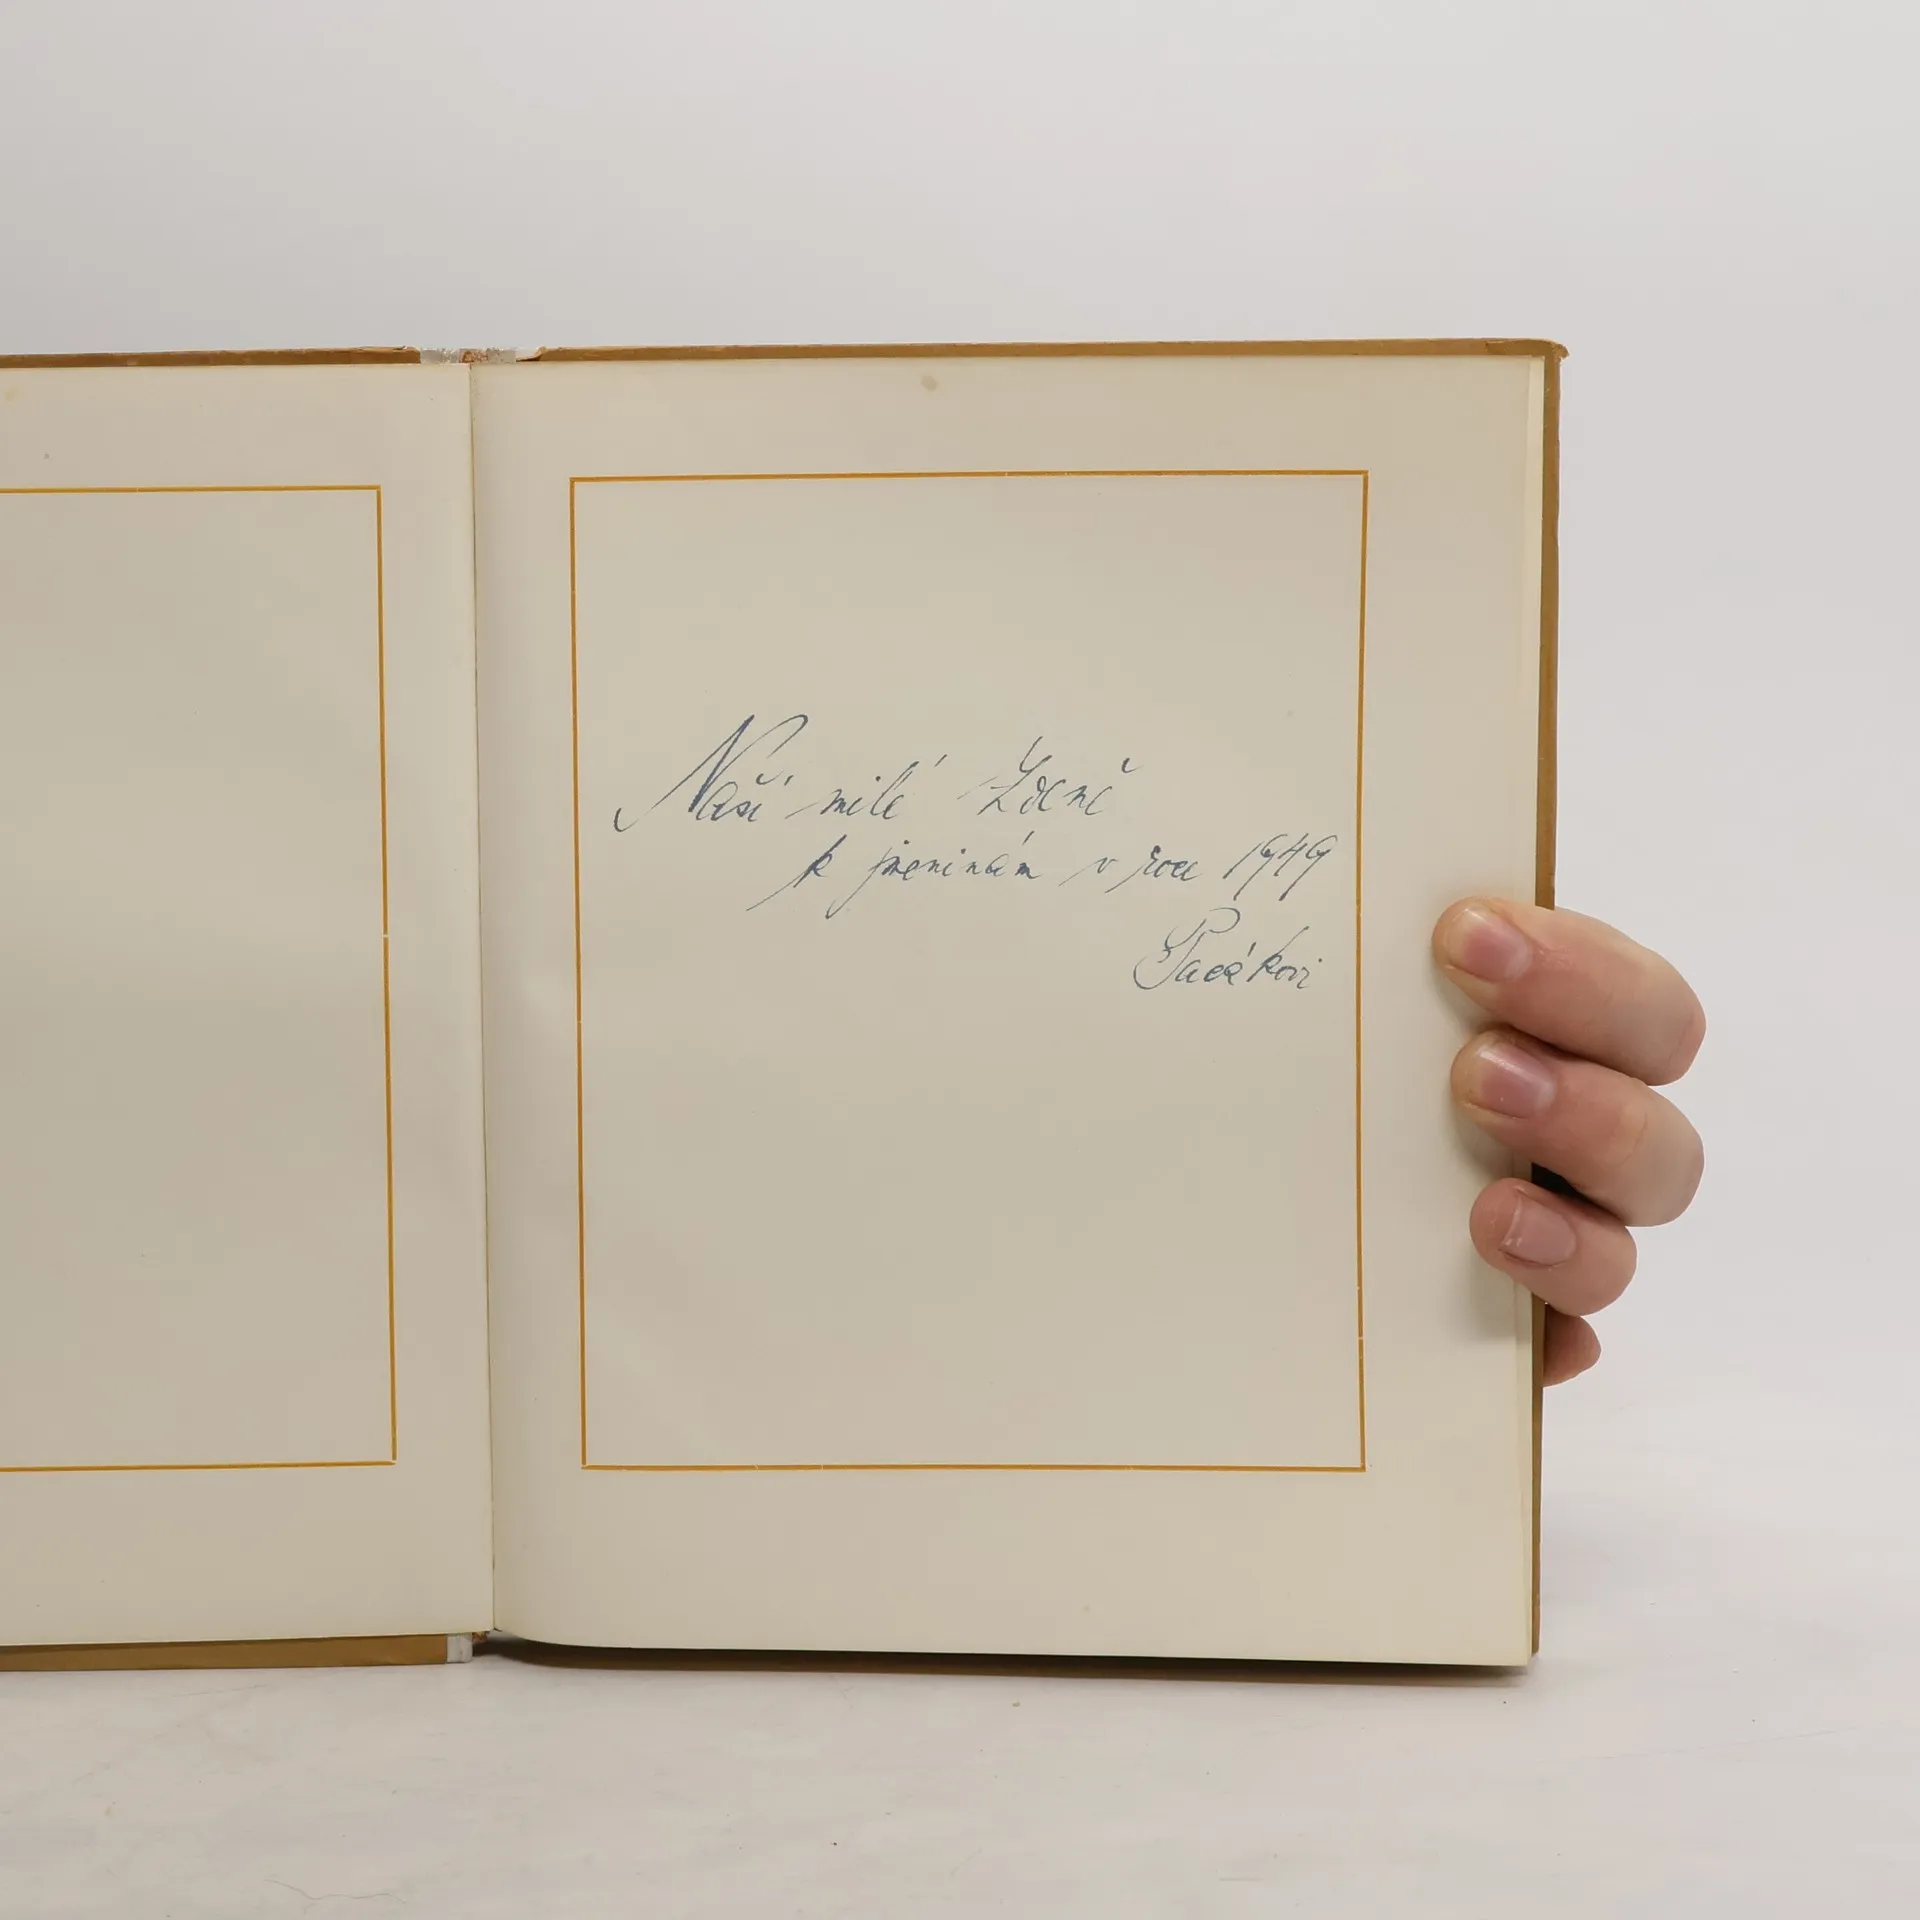 Naší milé Zdeně
k jmeninám v roce 1949
Pacákovi